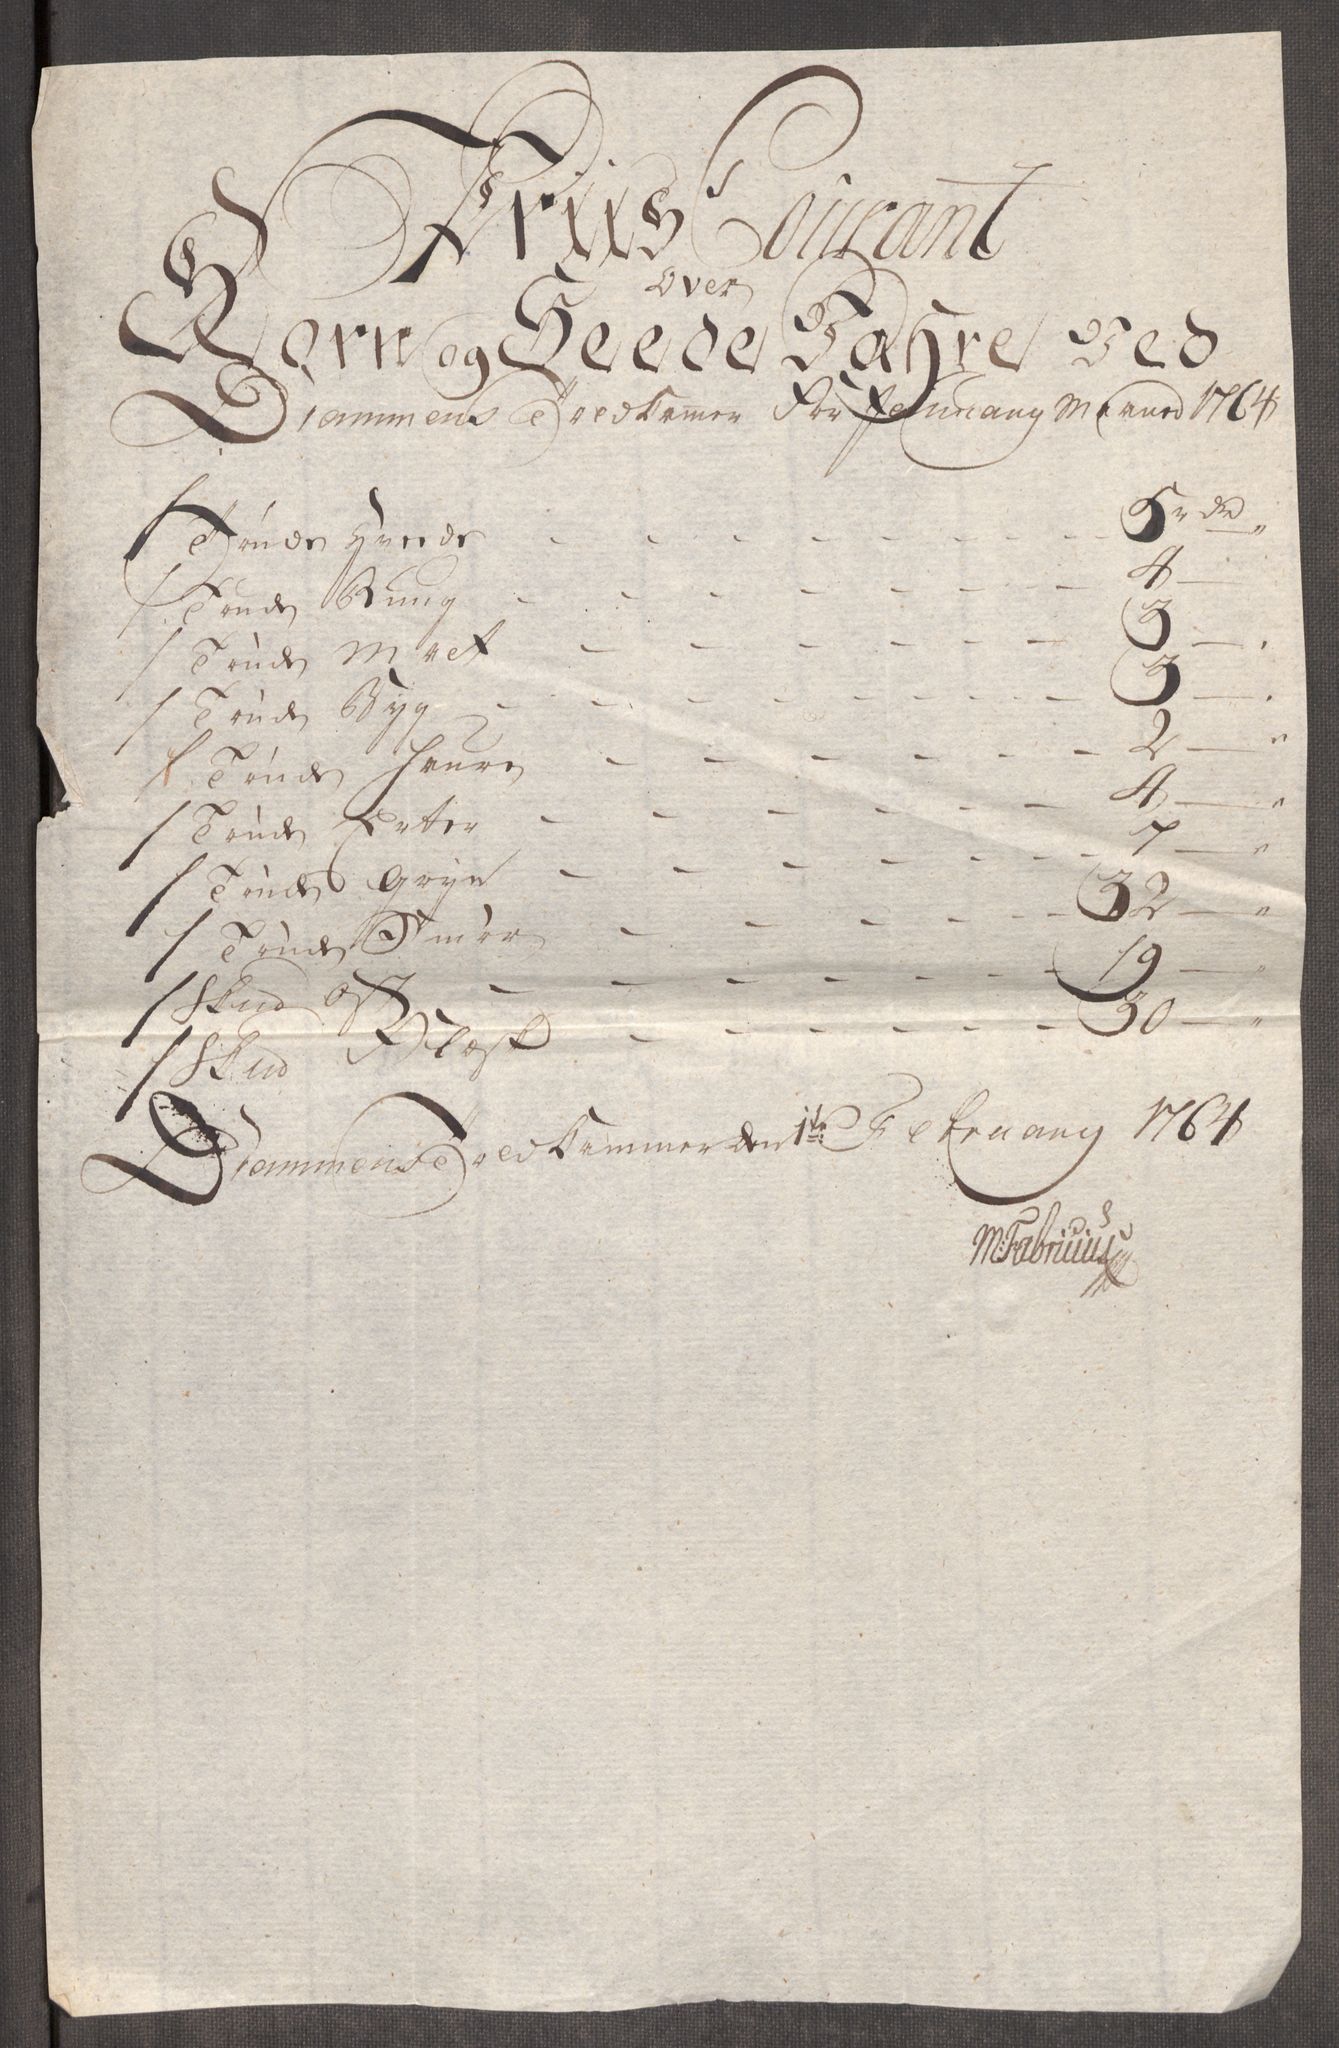 Priis Courant
over
Korn og Feede Vahre ved
Drammens Tredkamer For Januarij Maaned 1764
1 Tønde Hvede - - - - - - - 5 rdr "
1 Tønde Rug - - - - - - - 4 —
1 Tønde Malt - - - - - - 3 —
1 Tønde Byg - - - - - - - 3 —
1 Tønde Haure - - - - - 2 — "
1 Tønde Erter - - - - - - 4 — "
1 Tønde Gryn - - - - - - 7 — "
1 Tønde Smør - - - - - 32 — "
1 Skud Ost - - - - - - 19 — "
1 Skud - - - - - - 30 — "
Drammens Tredkammer den 1te February 1764
MFabritius